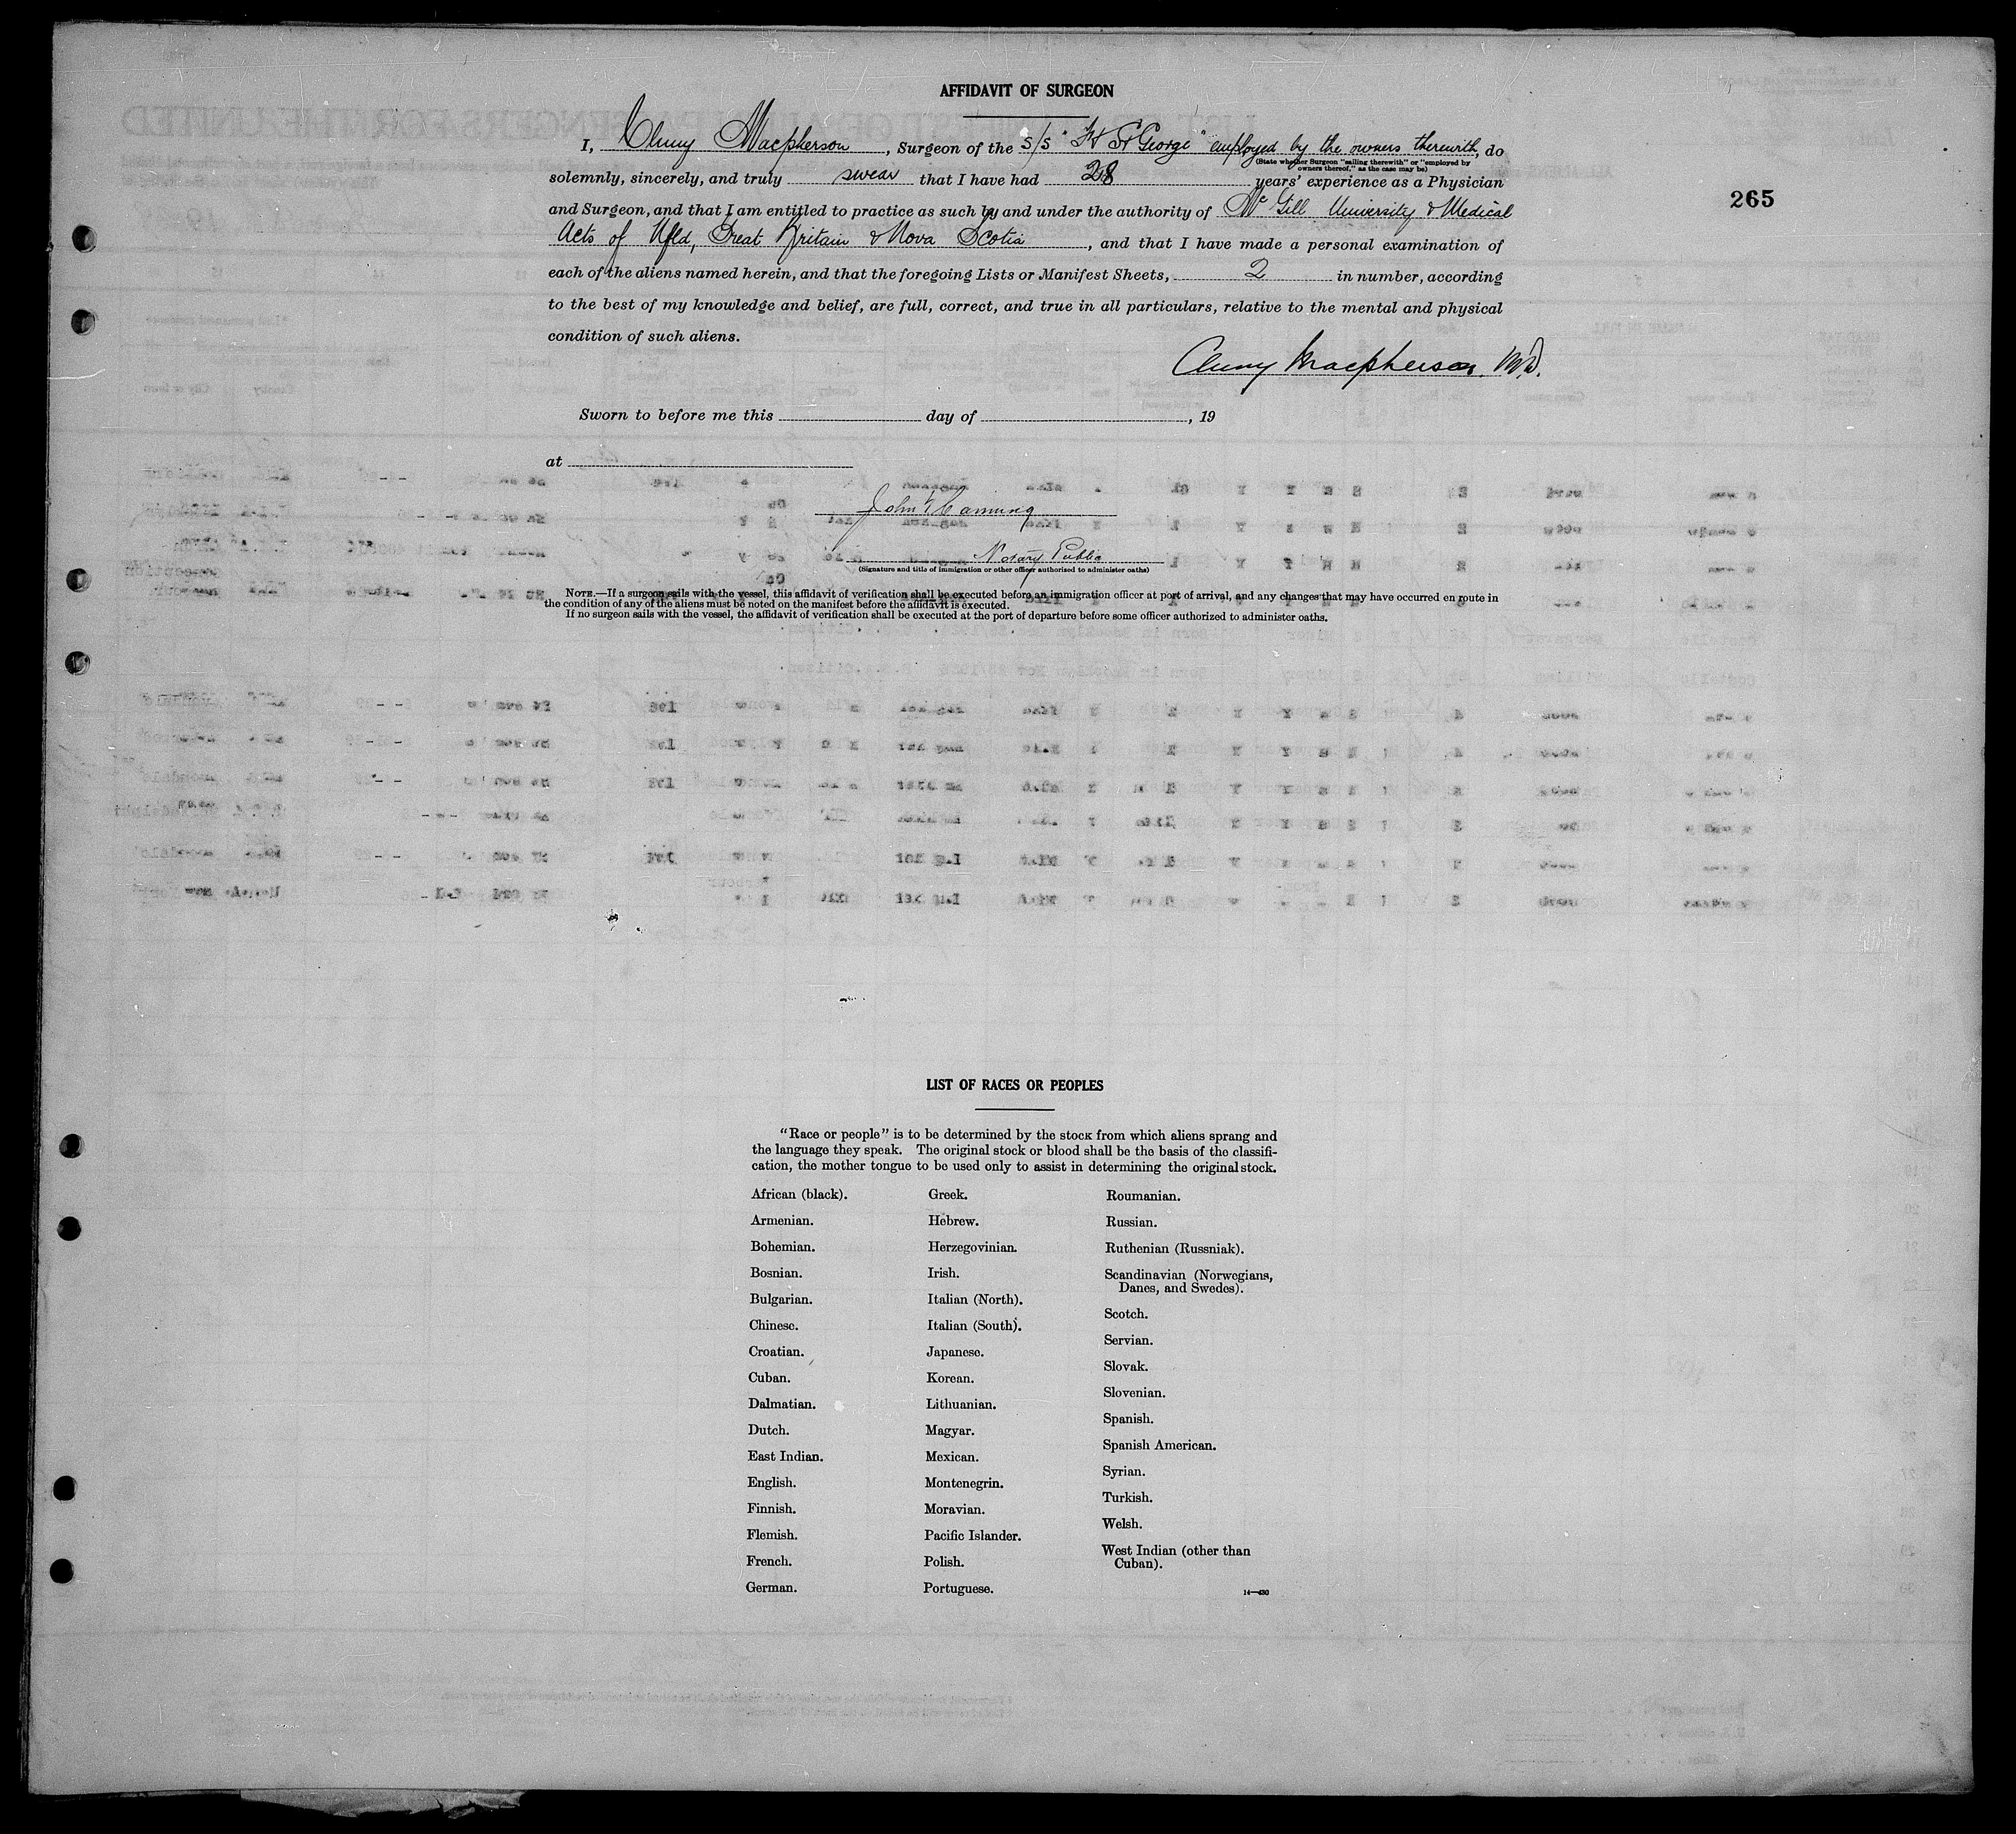 AFFIDAVIT OF SURGEON
I, Cluny Macpherson, Surgeon of the S/S "Ft St George" employed by the owners therewith, do
(State whether Surgeon "sailing therewith" or "employed by
owners thereof," as the case may be)
solemnly, sincerely, and truly swear that I have had 28 years' experience as a Physician
and Surgeon, and that I am entitled to practice as such by and under the authority of McGill University & Medical
Acts of Nfld, Great Britain & Nova Scotia, and that I have made a personal examination of
each of the aliens named herein, and that the foregoing Lists or Manifest Sheets, 2 in number, according
to the best of my knowledge and belief, are full, correct, and true in all particulars, relative to the mental and physical
condition of such aliens.
Cluny Macpherson, M.D.
265
Sworn to before me this day of , 19
at
John
Notary Public
(Signature and title of immigration or other officer authorized to administer oaths)
NOTE.—If a surgeon sails with the vessel, this affidavit of verification shall be executed before an immigration officer at port of arrival, and any changes that may have occurred en route in
the condition of any of the aliens must be noted on the manifest before the affidavit is executed.
If no surgeon sails with the vessel, the affidavit of verification shall be executed at the port of departure before some officer authorized to administer oaths.
LIST OF RACES OR PEOPLES
"Race or people" is to be determined by the stock from which aliens sprang and
the language they speak. The original stock or blood shall be the basis of the classifi-
cation, the mother tongue to be used only to assist in determining the original stock.
African (black).
Armenian.
Bohemian.
Bosnian.
Bulgarian.
Chinese.
Croatian.
Cuban.
Dalmatian.
Dutch.
East Indian.
English.
Finnish.
Flemish.
French.
German.
Greek.
Hebrew.
Herzegovinian.
Irish.
Italian (North).
Italian (South).
Japanese.
Korean.
Lithuanian.
Magyar.
Mexican.
Montenegrin.
Moravian.
Pacific Islander.
Polish.
Portuguese.
Roumanian.
Russian.
Ruthenian (Russniak).
Scandinavian (Norwegians,
Danes, and Swedes).
Scotch.
Servian.
Slovak.
Slovenian.
Spanish.
Spanish American.
Syrian.
Turkish.
Welsh.
West Indian (other than
Cuban).
14—430